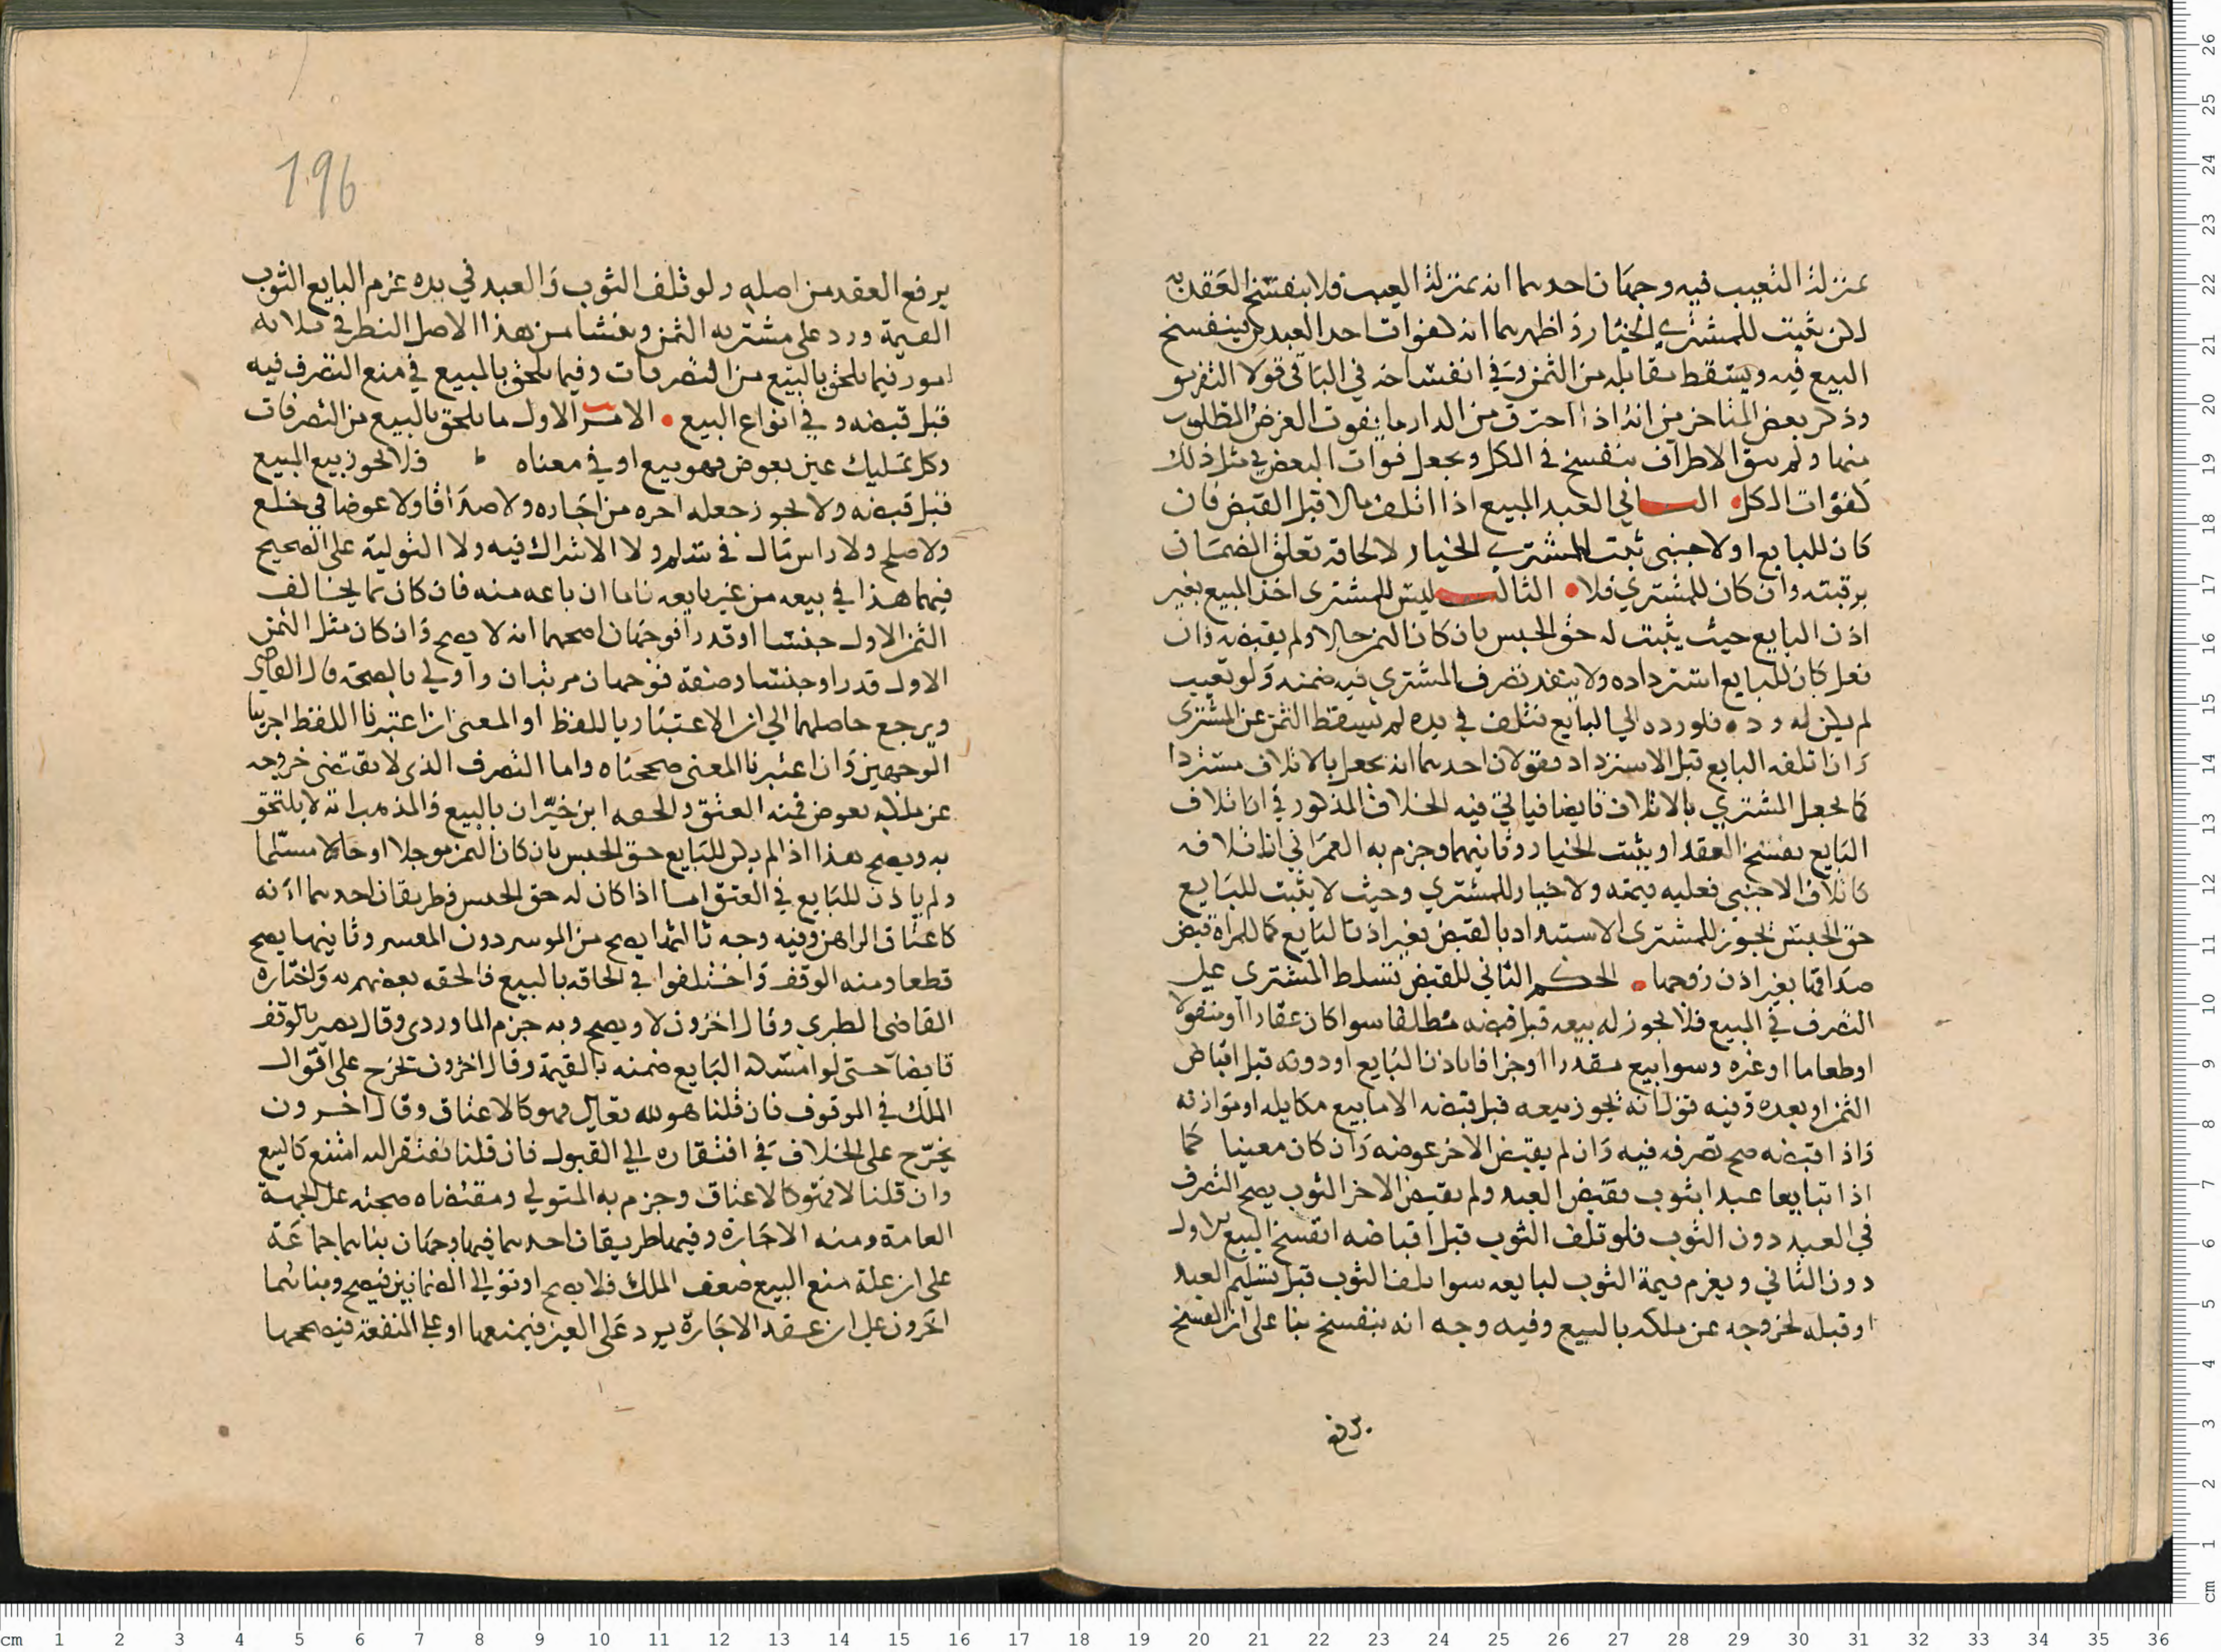 بمنزلة التعييب فيه وجهان احدهما انه بمنزلة العيب فلا ينفسخ العقد به
لكن يثبت للمشتري الخيار واظهرهما انه كفوات احد العبدين ينفسخ
البيع فيه ويسقط مقابله من الثمن وفي انفساخه في الباقي قولا التفريق
وذكر بعض المتاخرين انه اذا احترق من الدار ما يفوت الغرض المطلوب
منها ولم يبق الا طرف ينفسخ في الكل ويجعل فوات البعض في مثل ذلك
كفوات الكل الثاني العبد المبيع اذا اتلف مالا قبل القبض فان
كان للبايع او لاجنبي ثبت للمشتري الخيار لالحاقه تعلق الضمان
برقبته وان كان للمشتري فلا الثالث ليس للمشتري اخذ المبيع بغير
اذن البايع حيث يثبت له حق الحبس بان كان الثمن حالا ولم يقبضه فان
فعل كان للبايع استرداده ولا ينفذ تصرف المشتري فيه ضمنه ولو تعيب
لم يكن له رده فلو رده الي البايع فتلف في يده لم يسقط الثمن عن المشتري
وان اتلفه البايع قبل الاسترداد فقولان احدهما انه يجعل بالاتلاف مستردا
كما يجعل المشتري بالاتلاف قابضا فياتي فيه الخلاف المذكور في ان اتلاف
البايع يفسخ العقد او يثبت الخيار وثانيهما وجزم به العمراني ان اتلافه
كاتلاف الاجنبي فعليه قيمته ولا خيار للمشتري وحيث لا يثبت للبايع
حق الحبس يجوز للمشتري الاستبداد بالقبض بغير اذن البايع كما للمراة قبض
صداقها بغير اذن زوجها الحكم الثاني للقبض تسلط المشتري علي
التصرف في المبيع فلا يجوز له بيعه قبل قبضه مطلقا سوا كان عقارا او منقولا
او طعاما او غيره وسوا بيع مقدرا او جزافا باذن البايع او دونه قبل اقباض
الثمن او بعده وفيه قول انه يجوز بيعه قبل قبضه الا ما بيع مكايله او موازنه
واذا قبضه صح تصرفه فيه وان لم يقبض الاخر عوضه وان كان معينا كما
اذا تبايعا عبدا بثوب وقبض العبد ولم يقبض الاخر الثوب يصح التصرف
في العبد دون الثوب فلو تلف الثوب قبل اقباضه انفسخ البيع الاول
دون الثاني ويغرم قيمة الثوب لبايعه سوا تلف الثوب قبل تسليم العبد
او قبله لخروجه عن ملكه بالبيع وفيه وجه انه ينفسخ بنا على ان الفسخ
يرفع
196
يرفع العقد من اصله ولو تلف الثوب والعبد في يده غرم البايع الثوب
القيمة ورد على مشتريه الثمن وينشا من هذا الاصل النظر في ثلاثة
امور فيما يلحق بالبيع من التصرفات وفيما يلحق بالمبيع في منع التصرف فيه
قبل قبضه وفي انواع البيع الامر الاول ما يلحق بالبيع من التصرفات
وكل تمليك عين بعوض فهو بيع او في معناه فلا يجوز بيع المبيع
قبل قبضه ولا يجوز جعله اجرة من اجاره ولا صداقا ولا عوضا في خلع
ولا صلح ولا راس مال في سلم ولا الاشراك فيه ولا التولية على الصحيح
فيهما هذا في بيعه من غير بايعه فاما ان باعه منه فان كان بما يخالف
الثمن الاول جنسا او قدرا فوجهان اصحهما انه لا يصح وان كان مثل الثمن
الاول قدرا وجنسا وصفة فوجهان مرتبان واولي بالصحة قال القاضي
ويرجع حاصلهما الي ان الاعتبار باللفظ او المعنى ان اعتبرنا اللفظ اجرينا
الوجهين وان اعتبرنا المعنى صححناه واما التصرف الذي لا يقتضي خروجه
عن ملكه بعوض فمنه العتق والحقه ابن خيران بالبيع والمذهب انه لا يلتحق
به ويصح هذا اذا لم يكن للبايع حق الحبس بان كان الثمن موجلا او حالا مسلما
ولم ياذن للبايع في العتق اما اذا كان له حق الحبس فطريقان احدهما انه
كاعتاق الراهن وفيه وجه ثالثها يصح من الموسر دون المعسر وثانيهما يصح
قطعا ومنه الوقف واختلفوا في الحاقه بالبيع فالحقه بعضهم به واختاره
القاضي الطبري وقال اخرون لا ويصح وبه جزم الماوردي وقال يصير بالوقف
قابضا حتى لو امسكه البايع ضمنه بالقيمة وقال اخرون تخرج على اقوال
الملك في الموقوف فان قلنا هو لله تعالى فهو كالاعتاق وقال اخرون
يخرج على الخلاف في افتقاره الي القبول فان قلنا يفتقر اليه امتنع كالبيع
وان قلنا لا فهو كالاعتاق وجزم به المتولي ومقتضاه صحته على الجهة
العامة ومنه الاجارة وفيها طريقان احدهما فيها وجهان بناهما جماعة
على ان علة منع البيع ضعف الملك فلا يصح او توالي الضمانين فيصح وبناهما
اخرون علي ان عقد الاجارة يرد على العين فيمنعها او علي المنفعة فيصححها